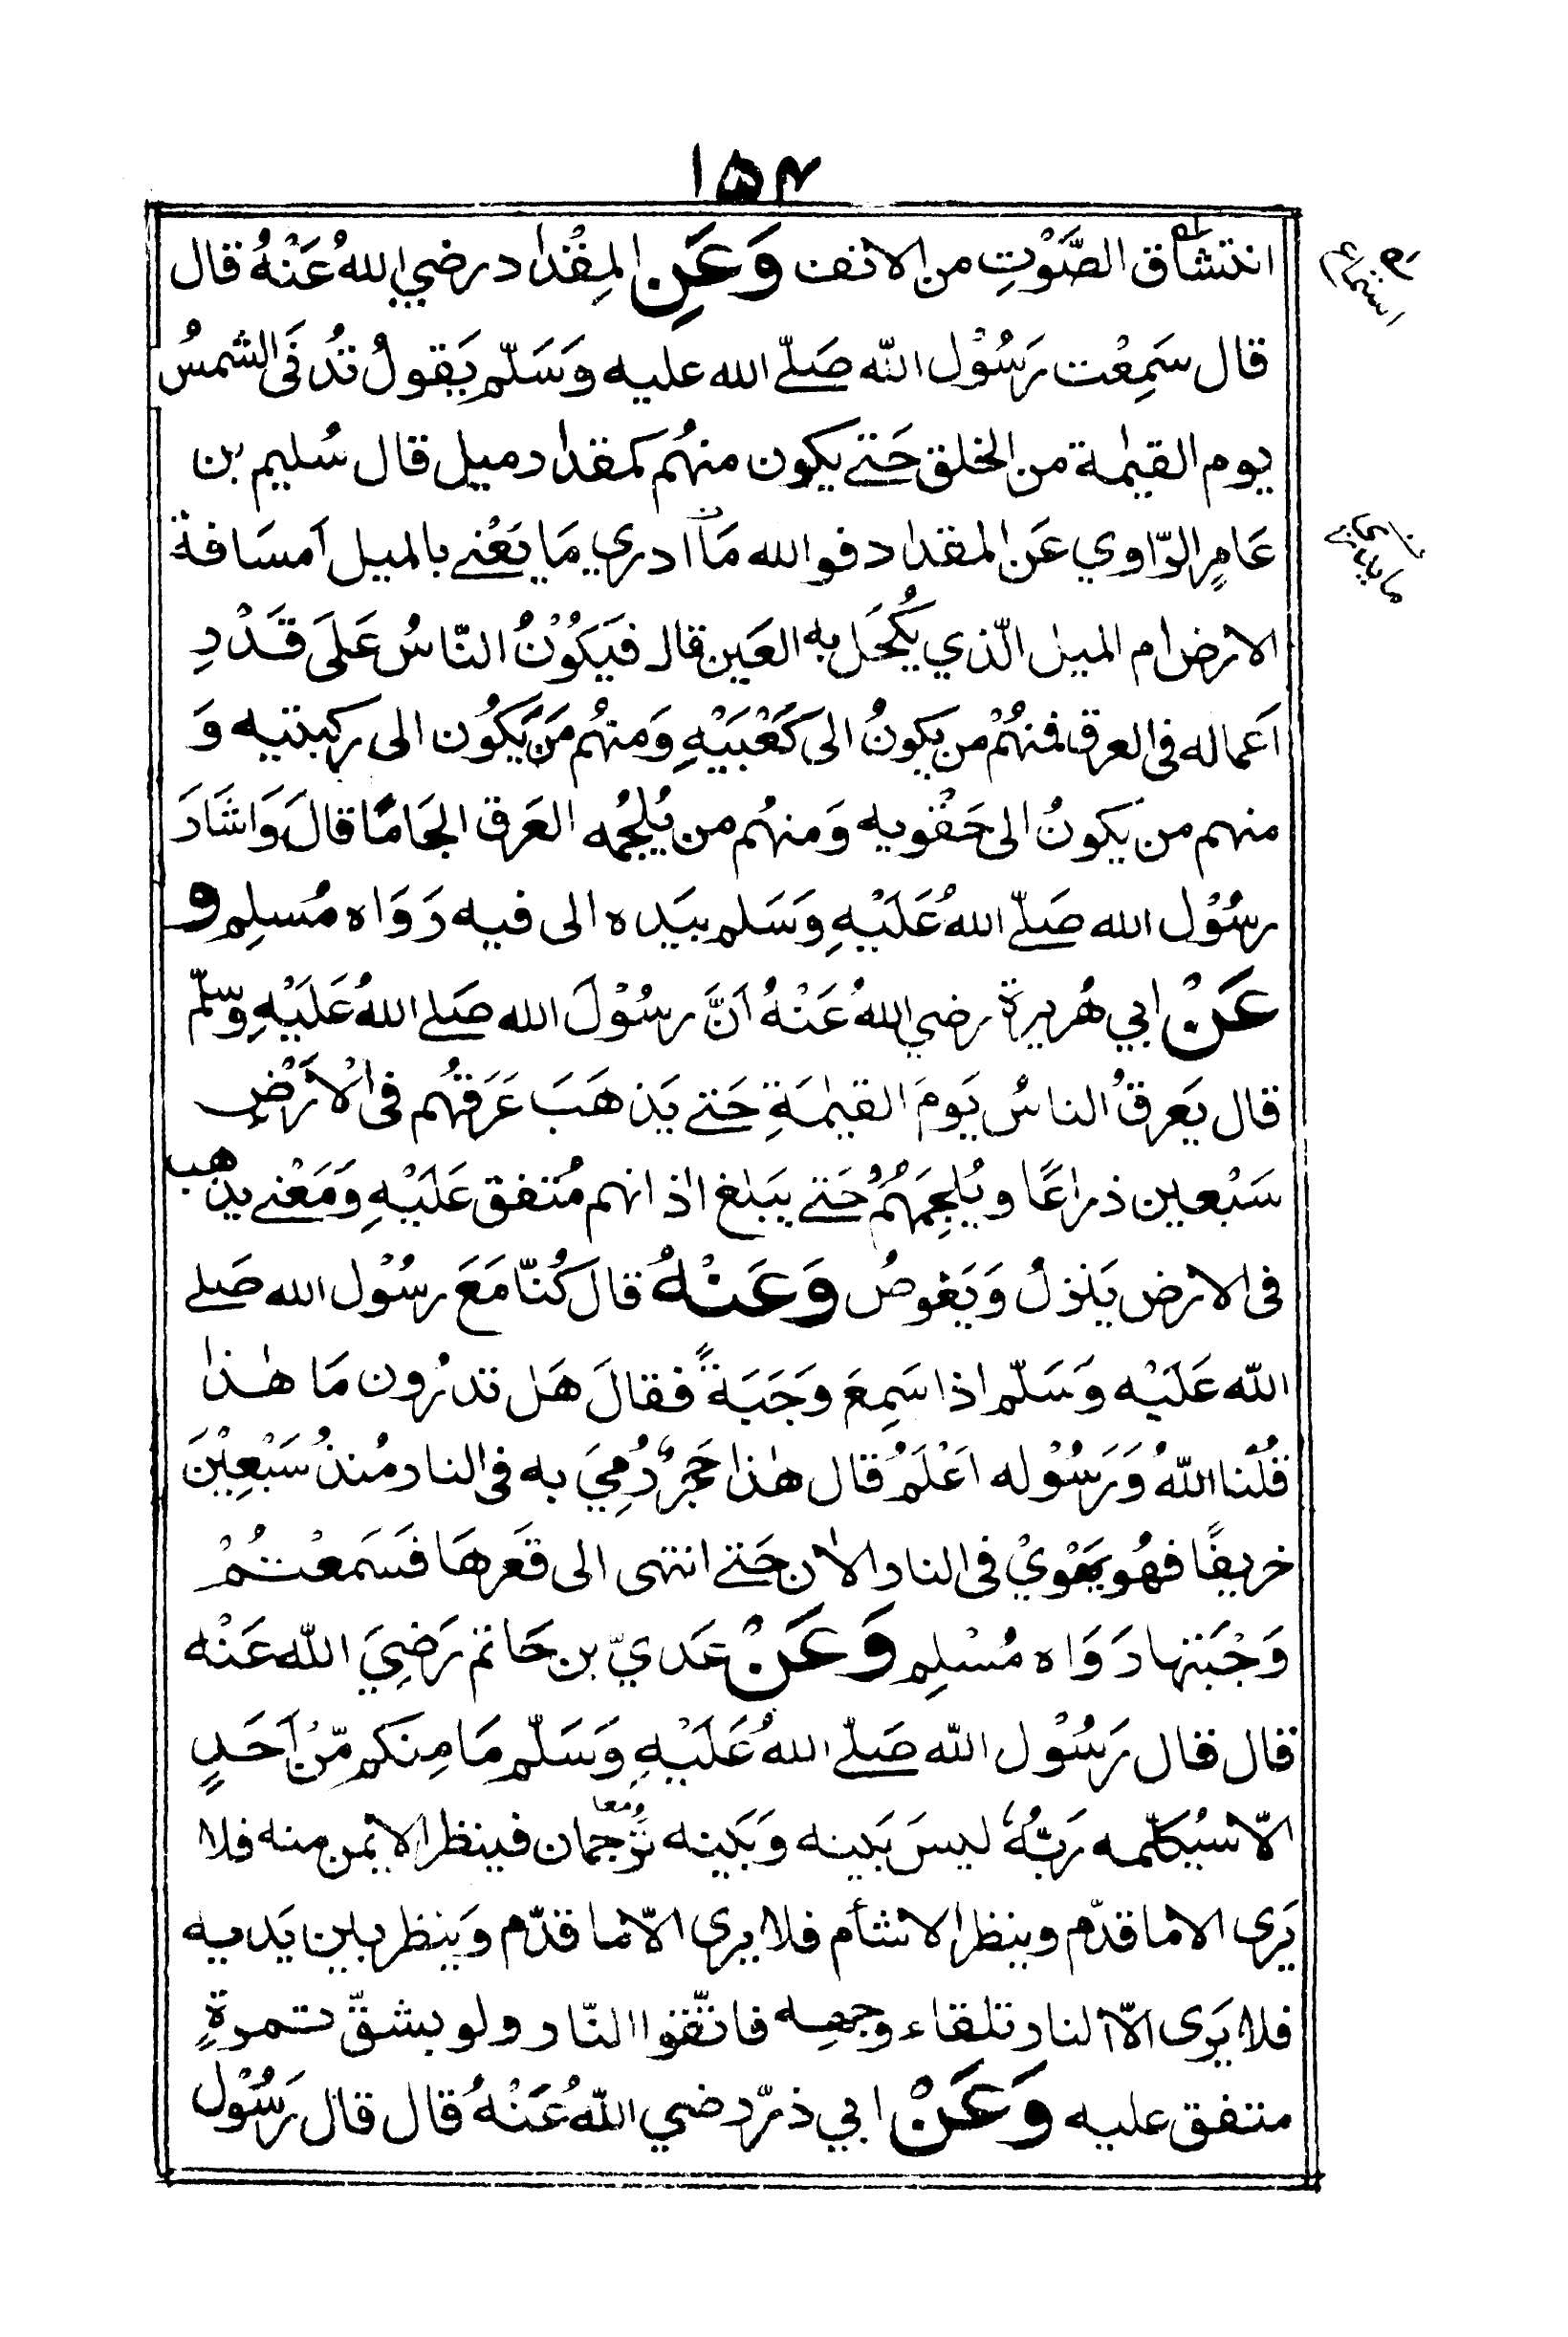 ۱۵۴
انتشاق الصَّوْتِ من الانف وَعَنِ المِقْدَاد رضي اللهُ عَنْهُ قال
قال سَمِعْت رَسُوْل اللّٰه صَلّے الله عليه وَسَلّم يَقولُ تُدنَى الشمسُ
يوم القيٰمة من الخلق حَتے يكون منهُم كمقدار ميل قال سُليم بن
عَامِرٍ الرّاوي عَن المقداد فو الله مَآ ادري مَا يَعْنے بالميل اَمسَافة
الارض ام الميل الّذي يُكحَل به العَين قال فيَكُوْنُ النّاسُ عَلَى قَدْرِ
اَعماله فى العرق فمنهُمْ من يكونُ الى كَعْبَيْهِ وَمنهُم مَنْ يَّكُون الى ركبتيه وَ
منهم من يَكونُ الى حَقْويه وَمنهُم من يُلجُمه العَرق الجَامًا قالَ وَاشَارَ
رسُوْل الله صَلّے اللهُ عَلَيْهِ وَسَلم بيَده الى فيه رَوَاه مُسلِم و
عَنْ ابي هُريرة رضي اللهُ عَنْهُ اَنَّ رسُوْلَ الله صَلے اللهُ عَلَيْهِ وسلّم
قال يَعرقُ الناسُ يَومَ القيٰمَةِ حَتے يَذهَبَ عَرَقُهُم فى الْاَرْضِ
سَبْعين ذراعًا ويُلجِمَهُمْ حَتے يبَلغ اٰذانهم مُتفق عَلَيْهِ وَمَعْنے يذهب
فى الارض يَنزلُ وَيَغوصُ وَعَنْهُ قالَ كُنّا مَعَ رسُوْل الله صَلے
اللّٰه عَلَيْه وَسَلّم اذا سَمِعَ وَجَبَةً فقالَ هَل تدرُون مَا هٰذا
قُلْنا اللّٰهُ وَرَسُوْله اَعْلَمُ قال هٰذا حَجَرٌ رُمِيَ به فى النار مُنذُ سَبْعِيْنَ
خريفًا فهُو يَهْوِيْ فى النار الاٰن حَتے انتهى الى قَعرهَا فَسَمعْتُمْ
وَجْبَتها رَوَاه مُسْلِم وَعَنْ عَديّ بن حَاتم رَضِيَ اللّٰه عَنْه
قال قال رَسُوْل اللّٰه صَلّے اللهُ عَلَيْهِ وَسَلّم مَا مِنكم مّنْ اَحَدٍ
الّا سيُكلّمه رَبُّهُ ليسَ بَينه وَبَينه تُرْجمان فينظر الايمن منه فلا
يَرى الا ما قدّم وينظر الاشأم فلا يرى الّا ما قدّم وَينظر بين يَديه
فلا يَرى الّا النار تلقاء وجهِه فاتّقوا النّار ولو بشقّ تمرةٍ
متفق عليه وَعَنْ ابي ذرّ رضي اللّٰهُ عَنْهُ قال قال رَسُوْل